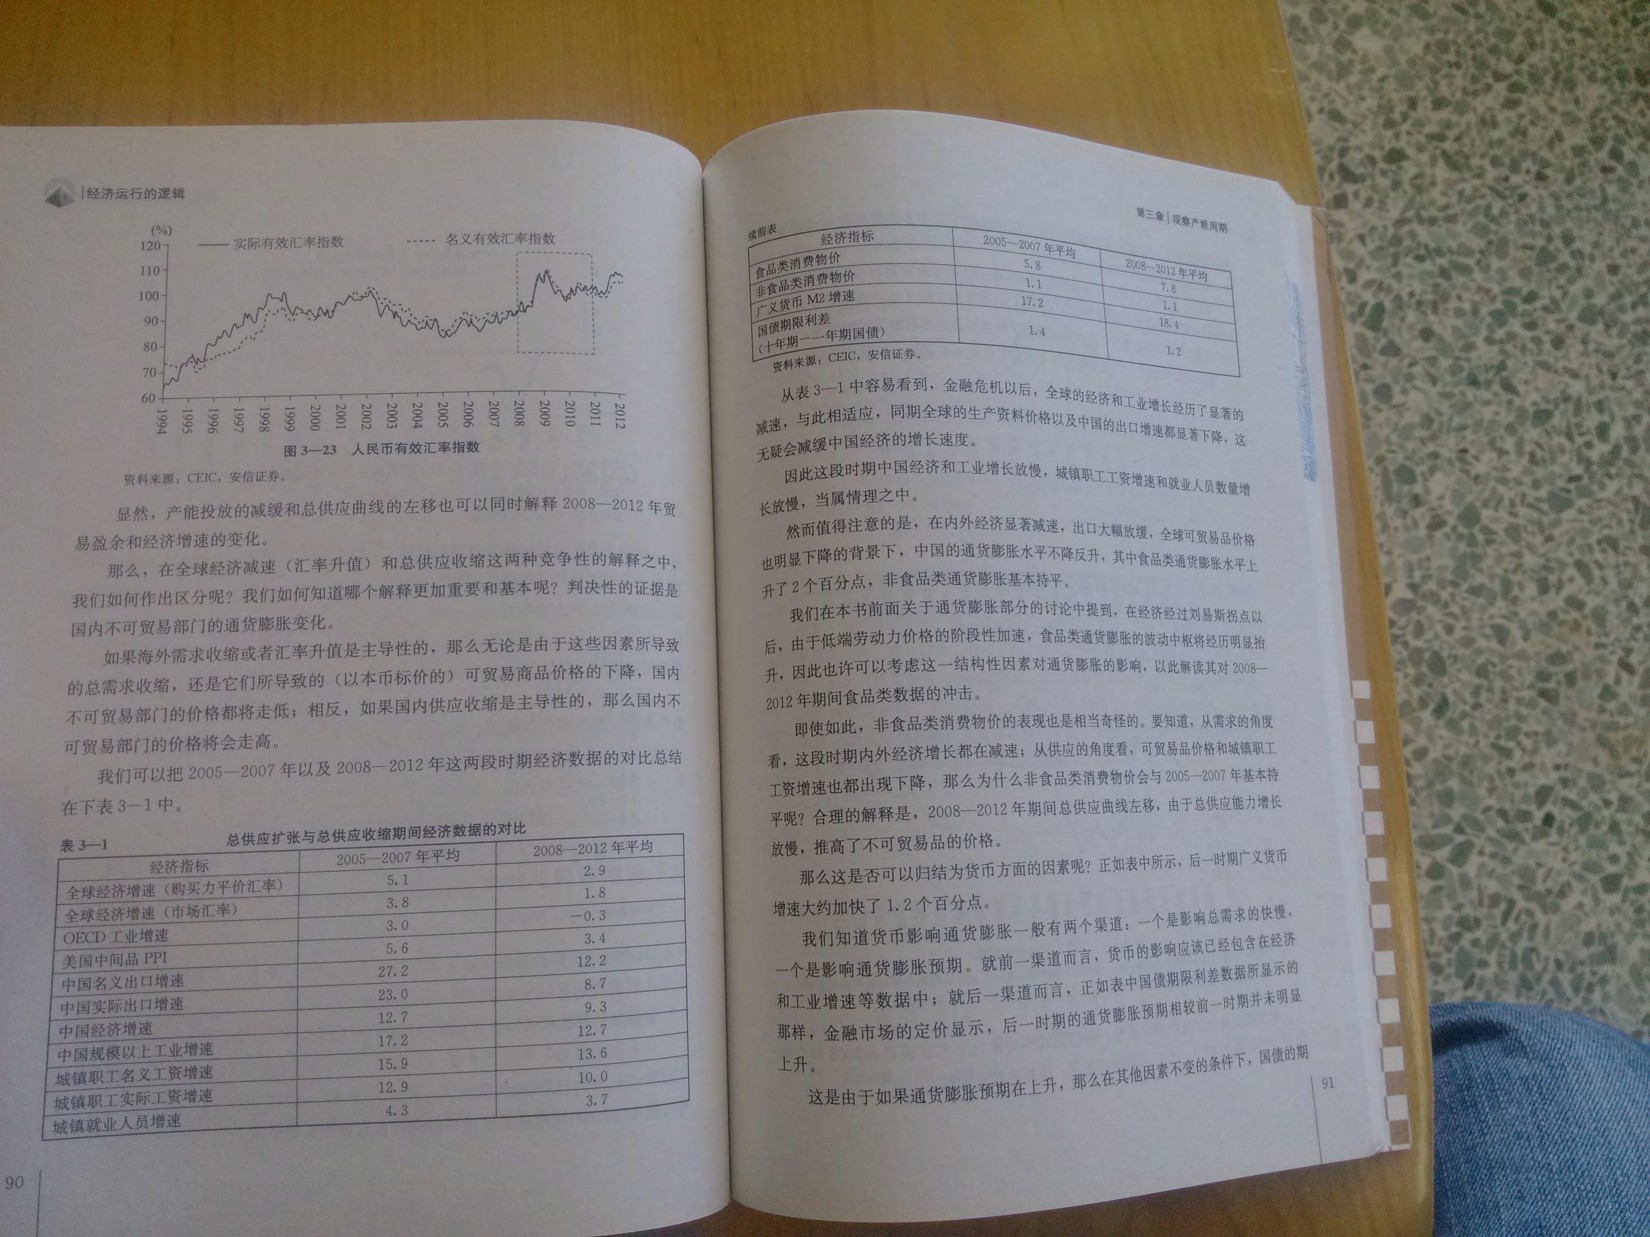 经济运行的逻辑
(%)
120
110
100
90
80
70
60
实际有效汇率指数
名义有效汇率指数
1994 1995 1996 1997 1998 1999 2000 2001 2002 2003 2004 2005 2006 2007 2008 2009 2010 2011 2012
图 3—23 人民币有效汇率指数
资料来源：CEIC，安信证券。
显然，产能投放的减缓和总供应曲线的左移也可以同时解释 2008—2012 年贸
易盈余和经济增速的变化。
那么，在全球经济减速（汇率升值）和总供应收缩这两种竞争性的解释之中，
我们如何作出区分呢？我们如何知道哪个解释更加重要和基本呢？判决性的证据是
国内不可贸易部门的通货膨胀变化。
如果海外需求收缩或者汇率升值是主导性的，那么无论是由于这些因素所导致
的总需求收缩，还是它们所导致的（以本币标价的）可贸易商品价格的下降，国内
不可贸易部门的价格都将走低；相反，如果国内供应收缩是主导性的，那么国内不
可贸易部门的价格将会走高。
我们可以把 2005—2007 年以及 2008—2012 年这两段时期经济数据的对比总结
在下表 3—1 中。
表 3—1 总供应扩张与总供应收缩期间经济数据的对比
经济指标 2005—2007 年平均 2008—2012 年平均
全球经济增速（购买力平价汇率） 5.1 2.9
全球经济增速（市场汇率） 3.8 1.8
OECD 工业增速 3.0 —0.3
美国中间品 PPI 5.6 3.4
中国名义出口增速 27.2 12.2
中国实际出口增速 23.0 8.7
中国经济增速 12.7 9.3
中国规模以上工业增速 17.2 12.7
城镇职工名义工资增速 15.9 13.6
城镇职工实际工资增速 12.9 10.0
城镇就业人员增速 4.3 3.7
90
第三章 观察产能周期
续前表
经济指标 2005—2007 年平均 2008—2012 年平均
食品类消费物价 5.8 7.8
非食品类消费物价 1.1 1.1
广义货币 M2 增速 17.2 18.4
国债期限利差
（十年期—一年期国债） 1.4 1.2
资料来源：CEIC，安信证券。
从表 3—1 中容易看到，金融危机以后，全球的经济和工业增长经历了显著的
减速，与此相适应，同期全球的生产资料价格以及中国的出口增速都显著下降，这
无疑会减缓中国经济的增长速度。
因此这段时期中国经济和工业增长放慢，城镇职工工资增速和就业人员数量增
长放慢，当属情理之中。
然而值得注意的是，在内外经济显著减速，出口大幅放缓，全球可贸易品价格
也明显下降的背景下，中国的通货膨胀水平不降反升，其中食品类通货膨胀水平上
升了 2 个百分点，非食品类通货膨胀基本持平。
我们在本书前面关于通货膨胀部分的讨论中提到，在经济经过刘易斯拐点以
后，由于低端劳动力价格的阶段性加速，食品类通货膨胀的波动中枢将经历明显抬
升，因此也许可以考虑这一结构性因素对通货膨胀的影响，以此解读其对 2008—
2012 年期间食品类数据的冲击。
即使如此，非食品类消费物价的表现也是相当奇怪的。要知道，从需求的角度
看，这段时期内外经济增长都在减速；从供应的角度看，可贸易品价格和城镇职工
工资增速也都出现下降，那么为什么非食品类消费物价会与 2005—2007 年基本持
平呢？合理的解释是，2008—2012 年期间总供应曲线左移，由于总供应能力增长
放慢，推高了不可贸易品的价格。
那么这是否可以归结为货币方面的因素呢？正如表中所示，后一时期广义货币
增速大约加快了 1.2 个百分点。
我们知道货币影响通货膨胀一般有两个渠道：一个是影响总需求的快慢，
一个是影响通货膨胀预期。就前一渠道而言，货币的影响应该已经包含在经济
和工业增速等数据中；就后一渠道而言，正如表中国债期限利差数据所显示的
那样，金融市场的定价显示，后一时期的通货膨胀预期相较前一时期并未明显
上升。
这是由于如果通货膨胀预期在上升，那么在其他因素不变的条件下，国债的期
91